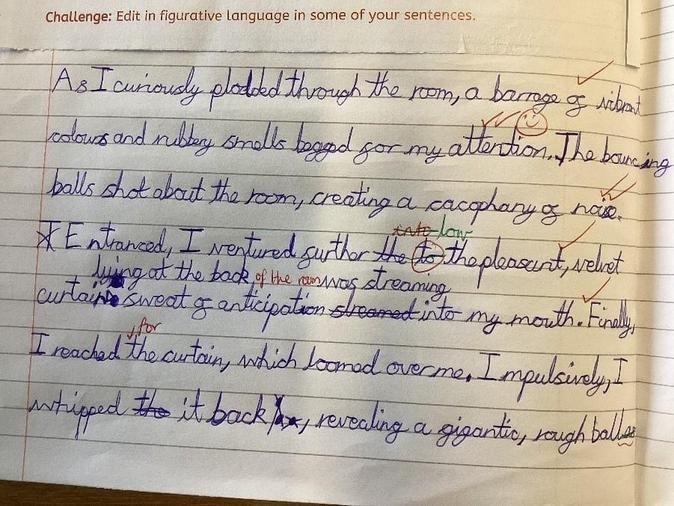 Challenge: Edit in figurative language in some of your sentences.
As I curiously plodded through the room, a barrage of vibrant
colours and rubbery smells begged for my attention. The bouncing
balls shot about the room, creating a cacophany of noise.
into low
Entranced, I ventured further the to the pleasant, velvet
lying at the back of the room was streaming
curtain sweat of anticipation streamed into my mouth. Finally,
for
I reached the curtain, which loomed over me. Impulsively, I
whipped the it back, revealing a gigantic, rough ball